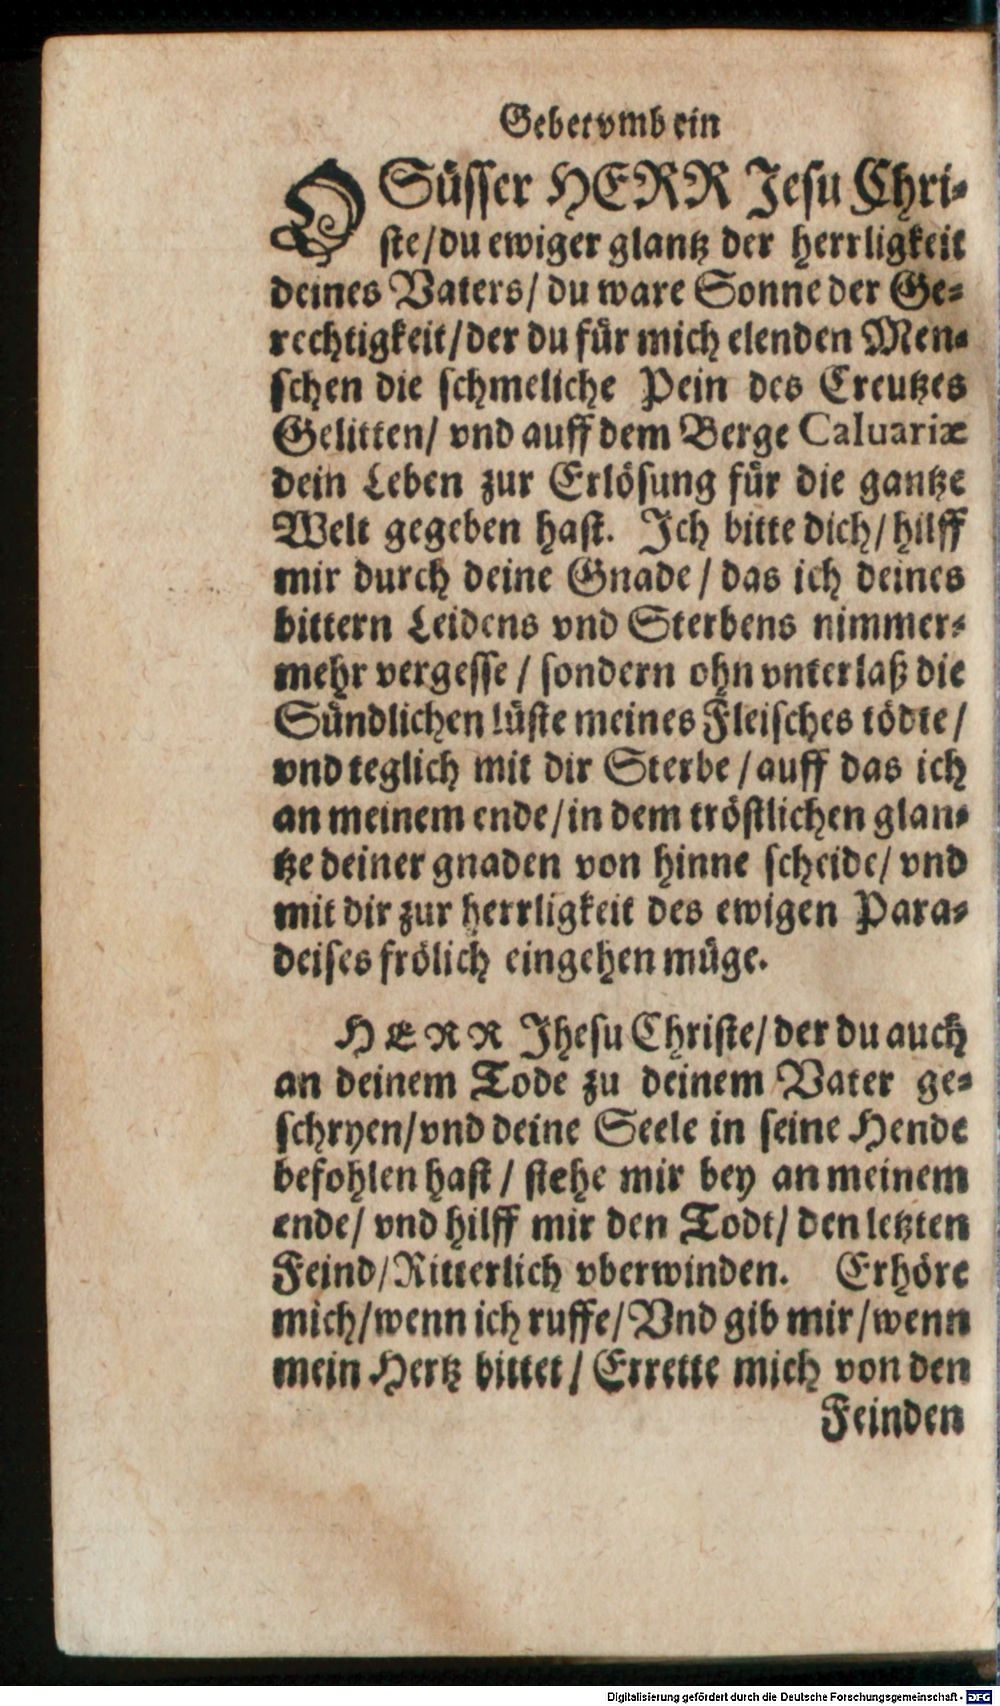 Gebet vmb ein
O Süsser HERR Jesu Chri-
ste/ du ewiger glantz der herrligkeit
deines Vaters/ du ware Sonne der Ge-
rechtigkeit/ der du für mich elenden Men-
schen die schmeliche Pein des Creutzes
Gelitten/ vnd auff dem Berge Caluariæ
dein Leben zur Erlösung für die gantze
Welt gegeben hast. Ich bitte dich/ hilff
mir durch deine Gnade/ das ich deines
bittern Leidens vnd Sterbens nimmer-
mehr vergesse/ sondern ohn vnterlaß die
Sündlichen lüste meines Fleisches tödte/
vnd teglich mit dir Sterbe/ auff das ich
an meinem ende/ in dem tröstlichen glan-
tze deiner gnaden von hinne scheide/ vnd
mit dir zur herrligkeit des ewigen Para-
deises frölich eingehen müge.
HERR Jhesu Christe/ der du auch
an deinem Tode zu deinem Vater ge-
schryen/ vnd deine Seele in seine Hende
befohlen hast/ stehe mir bey an meinem
ende/ vnd hilff mir den Todt/ den letzten
Feind/ Ritterlich vberwinden. Erhöre
mich/ wenn ich ruffe/ Vnd gib mir/ wenn
mein Hertz bittet/ Errette mich von den
Feinden
Digitalisierung gefördert durch die Deutsche Forschungsgemeinschaft - DFG